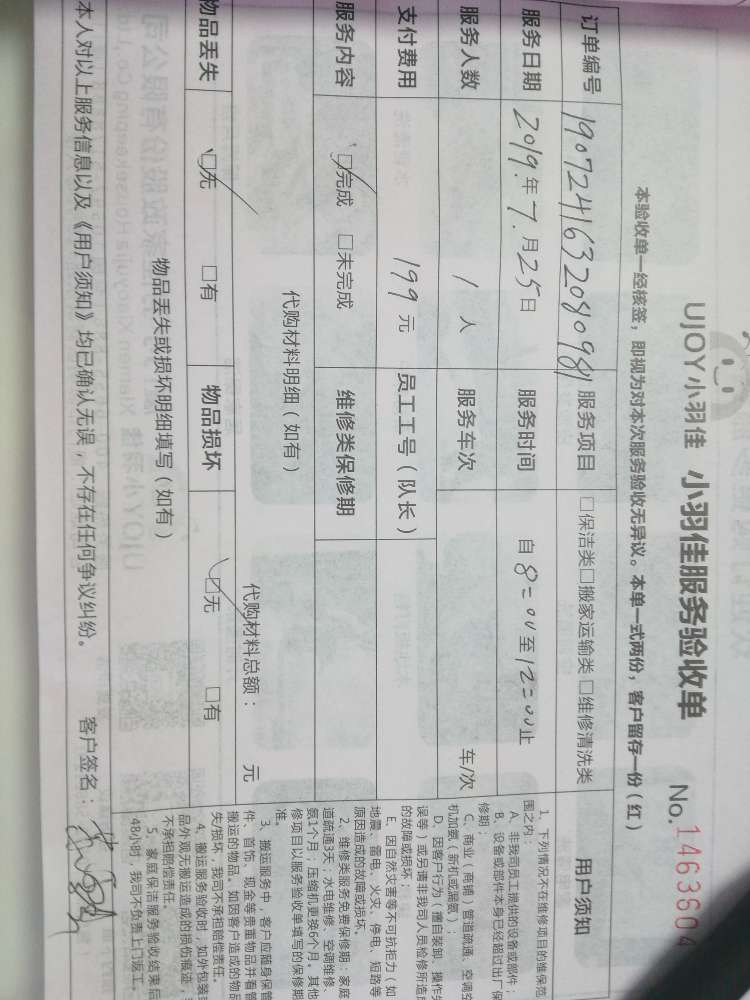 UJOY小羽佳 小羽佳服务验收单 No.1463604
本验收单一经核签，即视为对本次服务验收无异议。本单一式两份，客户留存一份（红）
订单编号 1907241632080981 服务项目 □保洁类□搬家运输类□维修清洗类
服务日期 2019.年7.月25日 服务时间 自8=00至12=00止
服务人数 1人 服务车次 车/次
支付费用 199元 员工工号（队长）
服务内容 □完成 □未完成 维修类保修期
代购材料明细（如有） 代购材料总额： 元
物品丢失 □无 □有 物品损坏 □无 □有
物品丢失或损坏明细填写（如有）
本人对以上服务信息以及《用户须知》均已确认无误，不存在任何争议纠纷。 客户签名：
用户须知
1、下列情况不在维修项目的维保范
围之内：
A、非我司员工提供的设备或部件；
B、设备或部件本身已经超过出厂保
修期；
C、商业（商铺）管道疏通、空调空
机加氨（新机或漏氨）；
D、因客户行为（擅自装卸、操作失
误等）或另请非我司人员检修所造成
的故障或损坏；
E、因自然灾害等不可抗拒力（如
地震、雷电、火灾、停电、短路等
原因造成的故障或损坏。
2、维修类服务免费保修期：家庭
道疏通3天；水电维修、空调维修、
氨1个月；压缩机更换6个月。其他
修项目以服务验收单填写的保修期
准。
3、搬运服务中，客户应随身保管
件、首饰、现金等贵重物品并看管
搬运的物品。如因客户造成的物品
失/损坏，我司不承担赔偿责任。
4、搬运服务验收时，如外包装或
品外观无搬运造成的损伤痕迹，
不承担赔偿责任。
5、家庭保洁服务验收结束后
48小时，我司不负责上门返工。